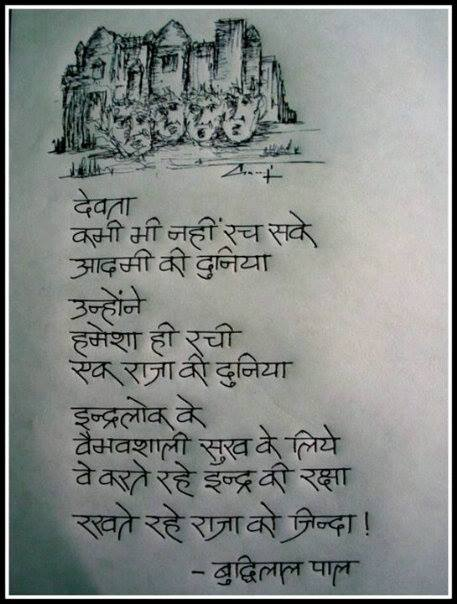 देवता
कभी भी नहीं रच सके
आदमी की दुनिया
उन्होंने
हमेशा ही रची
एक राजा की दुनिया
इन्द्रलोक के
वैभवशाली सुख के लिये
वे करते रहे इन्द्र की रक्षा
रखते रहे राजा को ज़िन्दा !
- बुद्धिलाल पाल